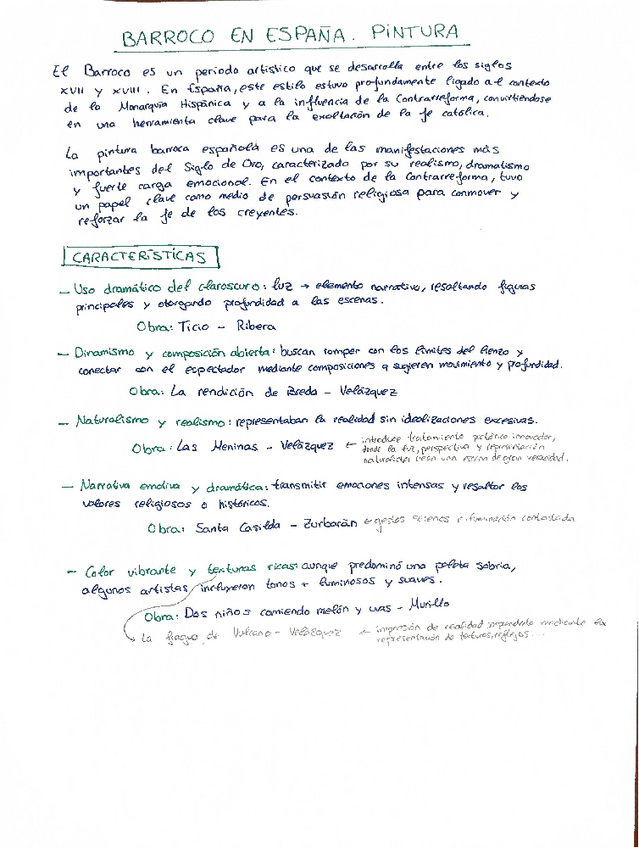 BARROCO EN ESPAÑA. PINTURA
El Barroco es un periodo artístico que se desarrolla entre los siglos
XVII y XVIII. En España, este estilo estuvo profundamente ligado al contexto
de la Monarquía Hispánica y a la influencia de la Contrarreforma, convirtiéndose
en una herramienta clave para la exaltación de la fe católica.
La pintura barroca española es una de las manifestaciones más
importantes del Siglo de Oro, caracterizado por su realismo, dramatismo
y fuerte carga emocional. En el contexto de la Contrarreforma, tuvo
un papel clave como medio de persuasión religiosa para conmover y
reforzar la fe de los creyentes.
CARACTERÍSTICAS
- Uso dramático del claroscuro: luz → elemento narrativo, resaltando figuras
principales y otorgando profundidad a las escenas.
Obra: Ticio - Ribera
- Dinamismo y composición abierta: buscan romper con los límites del lienzo y
conectar con el espectador mediante composiciones q sugieren movimiento y profundidad.
Obra: La rendición de Breda - Velázquez
- Naturalismo y realismo: representaban la realidad sin idealizaciones excesivas.
Obra: Las Meninas - Velázquez ← introduce tratamiento pictórico innovador,
donde la luz, perspectiva y representación
naturalista crean una escena de gran veracidad.
- Narrativa emotiva y dramática: transmitir emociones intensas y resaltar los
valores religiosos o históricos.
Obra: Santa Casilda - Zurbarán ← gestos serenos e iluminación contrastada
- Color vibrante y texturas ricas: aunque predominó una paleta sobria,
algunos artistas incluyeron tonos + luminosos y suaves.
Obra: Dos niños comiendo melón y uvas - Murillo
→ La fragua de Vulcano - Velázquez ← impresión de realidad mediante la
representación de texturas, reflejos...